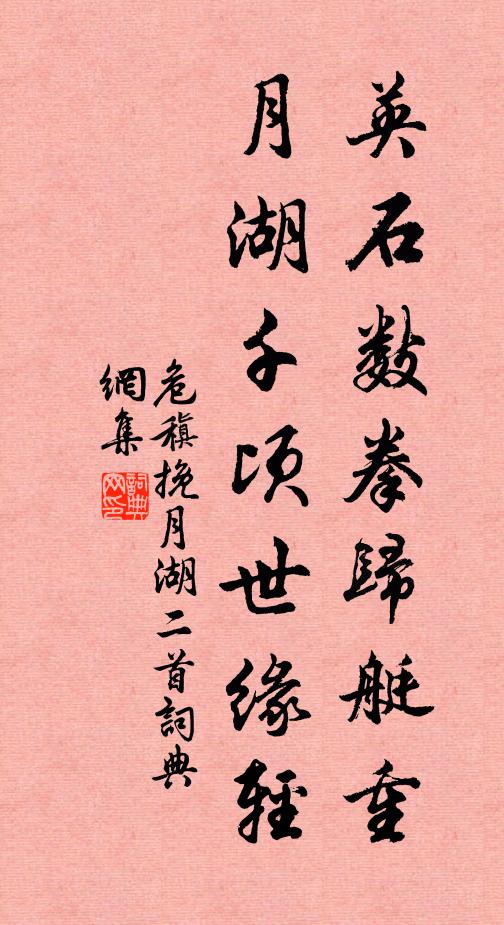 英石数拳歸艇重
月湖千頃世緣輕
危稹挽月湖二首詞典
網集
詞典
网印